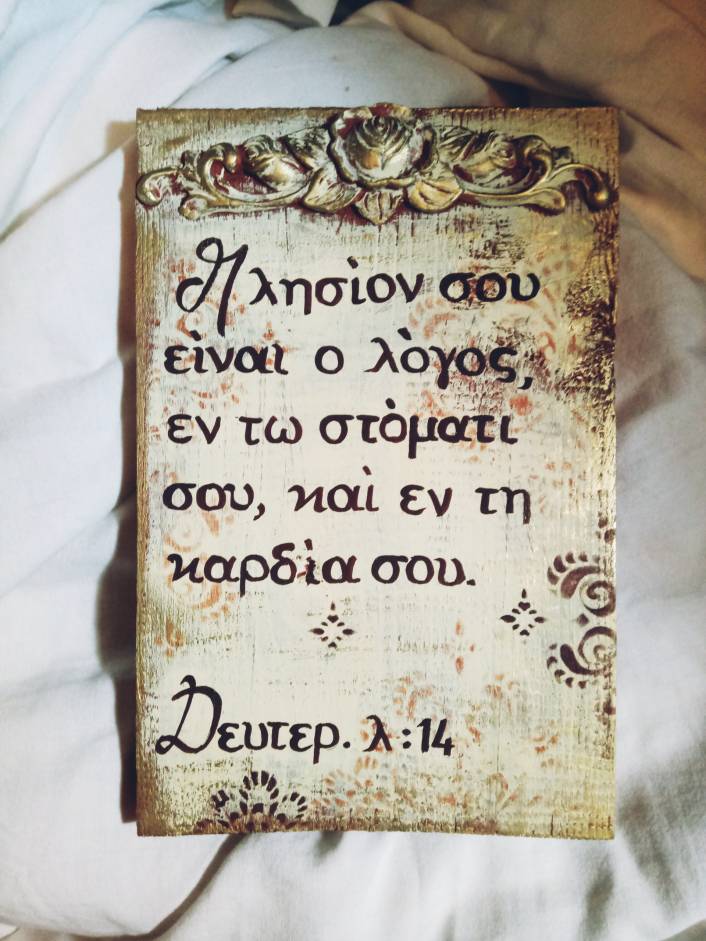 Πλησὶον σου
εὶναι ο λὸγος,
εν τω στὸματι
σου, καὶ εν τη
καρδὶα σου.
Δευτερ. λ:14